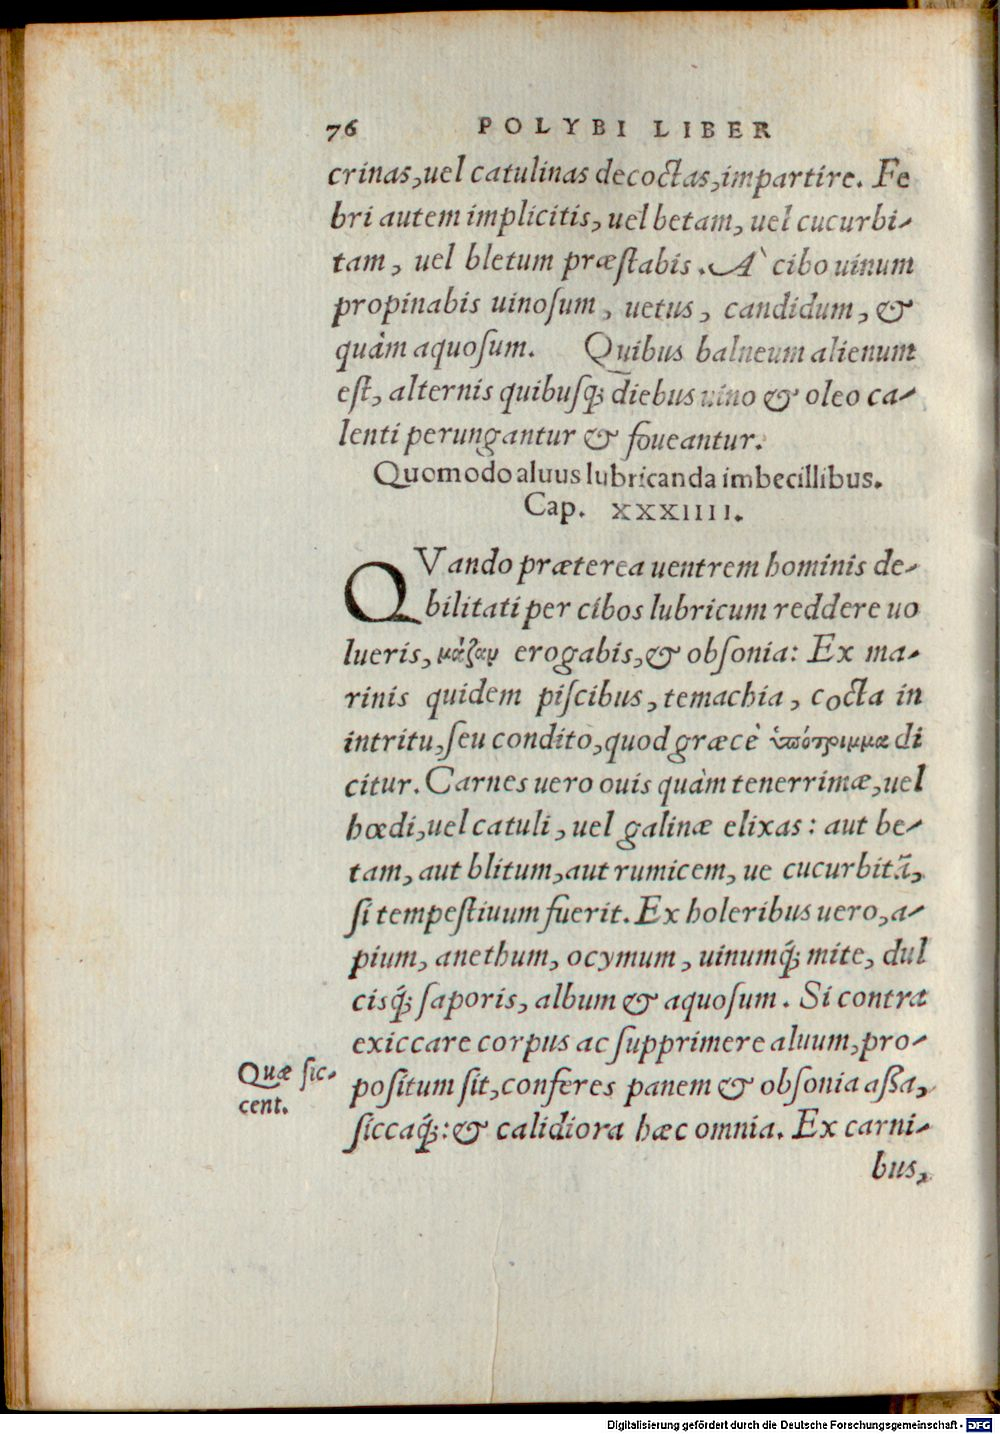 76 POLYBI LIBER
crinas, uel catulinas decoctas, impartire. Fe
bri autem implicitis, uel betam, uel cucurbi-
tam, uel bletum præſtabis. A` cibo uinum
propinabis uinoſum, uetus, candidum, &
quàm aquoſum. Quibus balneum alienum
eſt, alternis quibuſq́; diebus uino & oleo ca-
lenti perungantur & foueantur.
Quomodo aluus lubricanda imbecillibus.
Cap. XXXIIII.
QVando præterea uentrem hominis de-
bilitati per cibos lubricum reddere uo
lueris, μάζαν erogabis, & obſonia: Ex ma-
rinis quidem piſcibus, temachia, cocta in
intritu, ſeu condito, quod græcè ὑπότριμμα di
citur. Carnes uero ouis quàm tenerrimæ, uel
hœdi, uel catuli, uel galinæ elixas: aut be-
tam, aut blitum, aut rumicem, ue cucurbitā,
ſi tempeſtiuum fuerit. Ex holeribus uero, a-
pium, anethum, ocymum, uinumq́; mite, dul
cisq́; ſaporis, album & aquoſum. Si contra
exiccare corpus ac ſupprimere aluum, pro-
Quæ ſic-
cent.
poſitum ſit, conferes panem & obſonia aſſa,
ſiccaq́;: & calidiora hæc omnia. Ex carni-
bus,
Digitalisierung gefördert durch die Deutsche Forschungsgemeinschaft - DFG